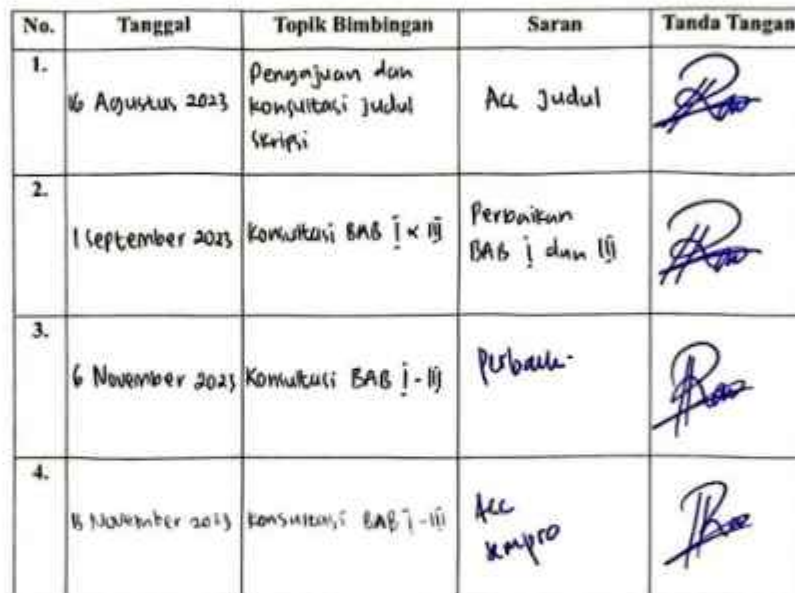 No. Tanggal Topik Bimbingan Saran Tanda Tangan
1.
16 Agustus 2023
Pengajuan dan
konsultasi judul
skripsi
Acc Judul
2.
1 September 2023
Konsultasi BAB I & III
Perbaikan
BAB I dan III
3.
6 November 2023
Konsultasi BAB I - III
4.
November 2023
Konsultasi BAB I - III
Acc
sempro